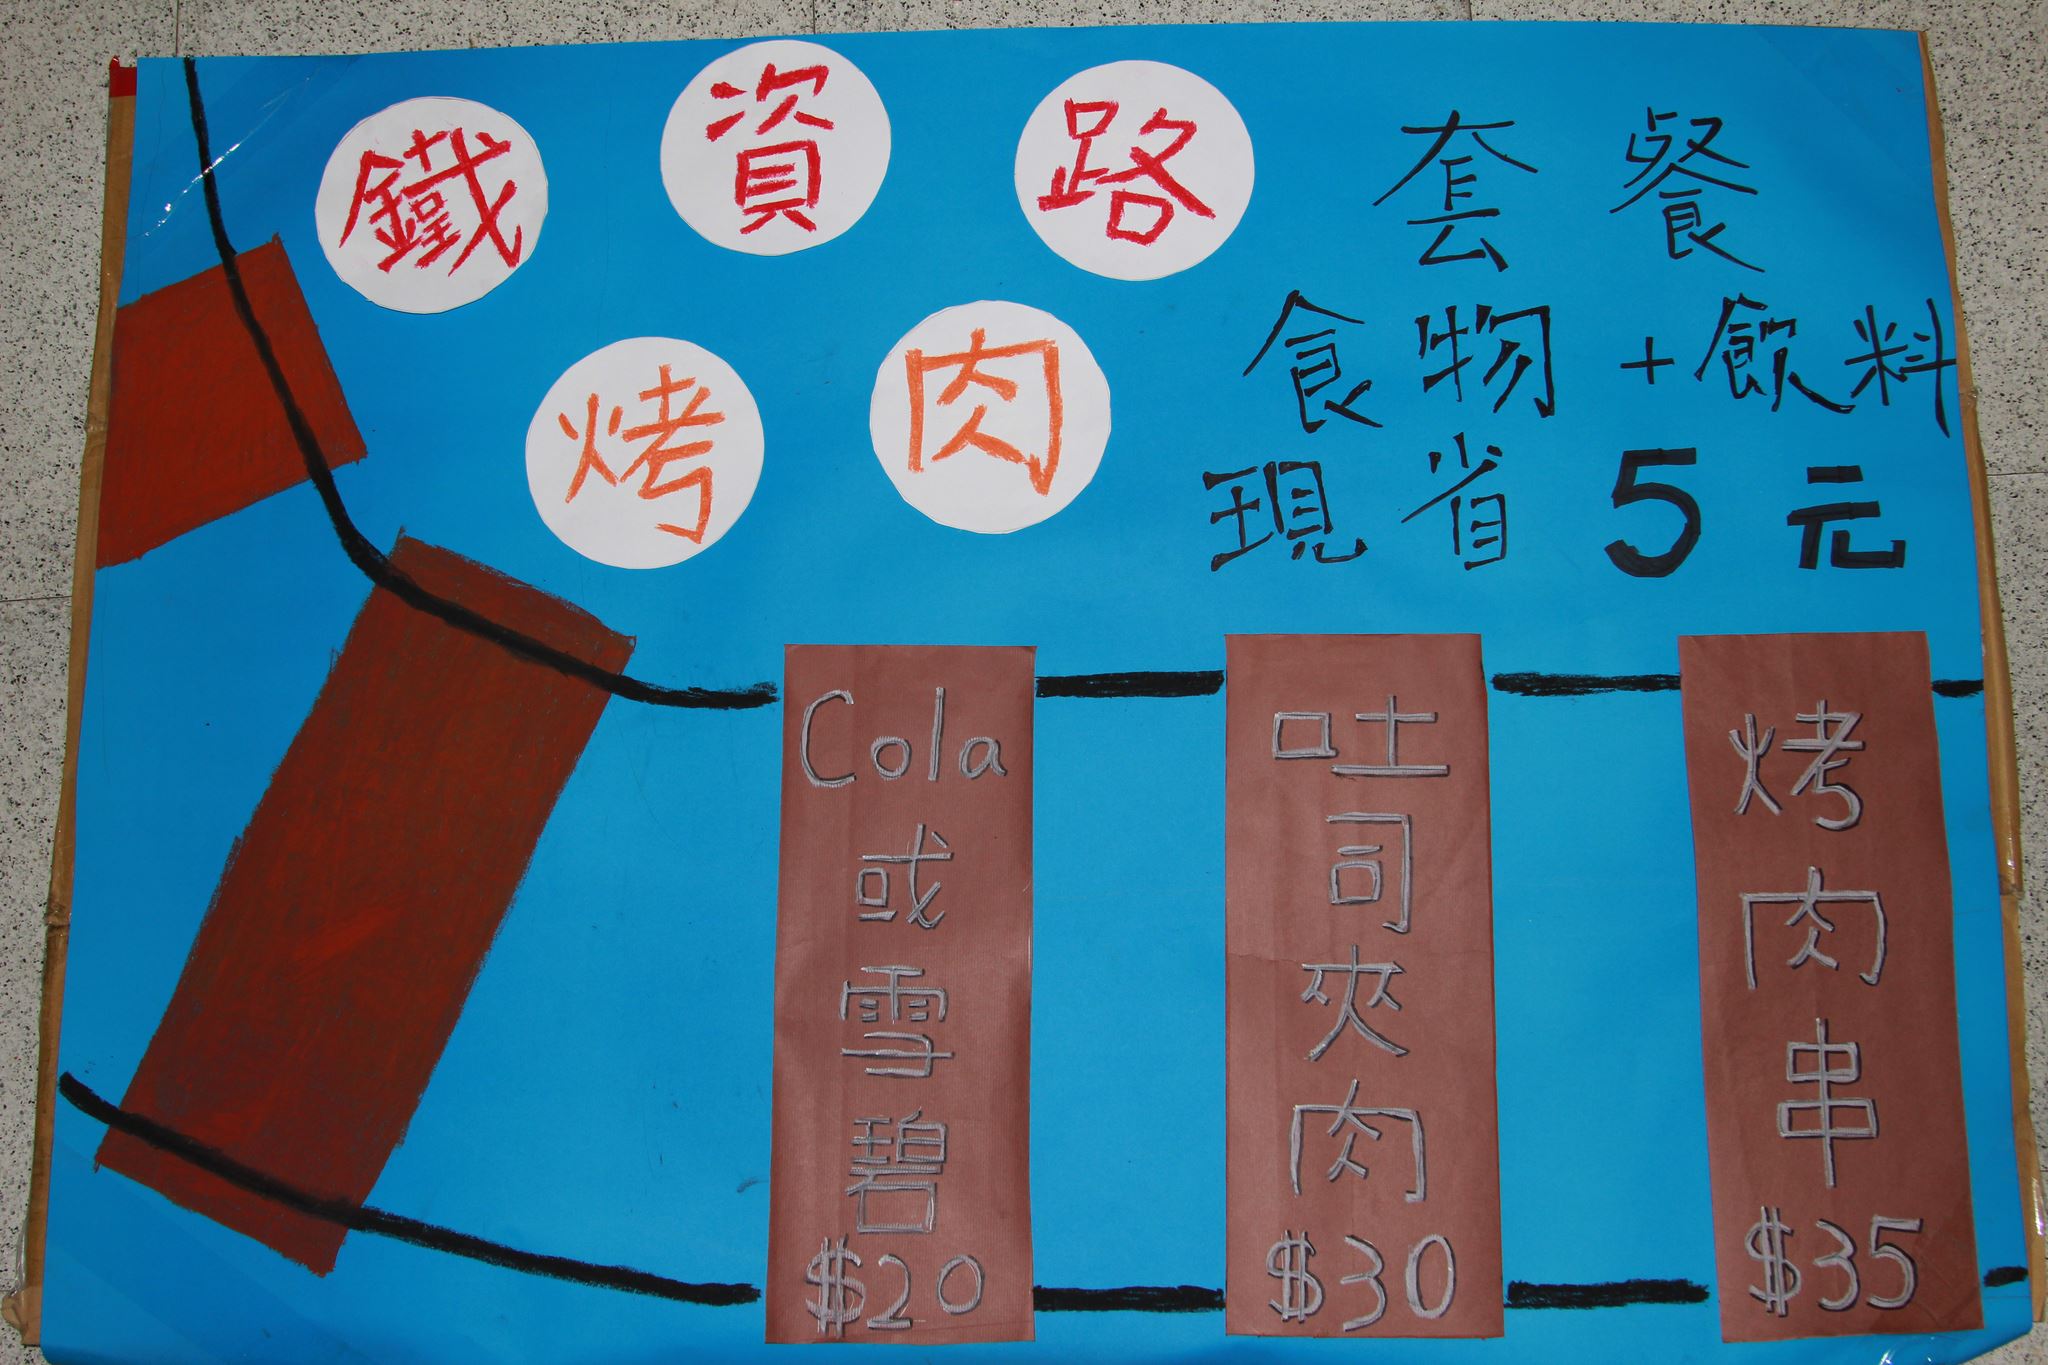 鐵資路
烤肉
套餐
食物+飲料
現省5元
Cola或雪碧$20
吐司夾肉$30
烤肉串$35